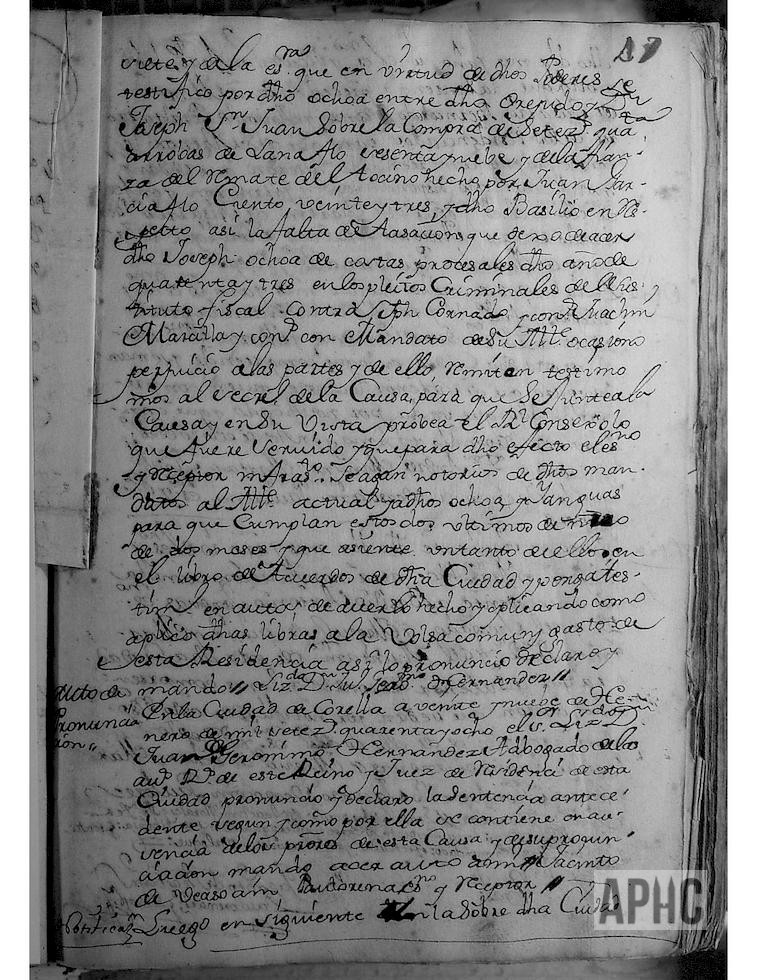 17
siete, y de la esra que en virtud de dhos Poderes
testifico por dho ochoa entre dho Crespido y Dn
Joseph Sn Juan sobre la Compra de Setezta qua
arrobas de Lana flo sesenta y nuebe y de la fian-
za del Remate del tocino hecho por Juan Gar-
cia flo Ciento veinte y tres, y dho Basilio en Res-
petto asi la falta de tasacion que dexo de acer
dho Joseph ochoa de costas procesales dho año de
quarenta y tres en los pleitos Criminales del Subs-
tituto fiscal contra Jph Cornado y conste Juachin
Maralla y conste con Mandato de su Mtd ocasiono
perjuicio a las partes y de ello, Remitan testimo
nios al Secrel de la Causa, para que Se Junte a la
Causa y en su Vista probea el Rl Consejo lo
que fuere Servido y que para dho efecto el esno
y Receptor infraso Se agan notorios dhos man-
datos al Alle actual y a dhos ochoa, y Yanguas
para que Cumplan estos dos ultimos dentro
de dos meses y que asiente un tanto de ello en
el libro de Acuerdos de dha Ciudad y ponga tes-
timo en autos de averlo hecho y aplicando como
aplico dhas libras a la Volsa comun y gasto de
esta Residencia asi lo pronuncio declaro y
mando // Lizdo Dn Ju Germo Hernandez //
auto de Pronuncia cion //
En la Ciudad de Corella a veinte y nuebe de He-
nero de mil setez quarenta y ocho el Sr Lizdo Dn
Juan Geronimo Hernandez Abbogado de las
auds Rs de este Reino y Juez de Residencia de esta
Ciudad pronuncio y declaro la sentencia antece-
dente segun y como por ella se contiene en au-
diencia de los prores de esta Causa y de su pronun-
ciacion mando acer auto a mi // Jacinto
de Beasoain Paulorena esno y Receptor //
Notificazn Luego en siguiente en la Sobre dha Ciudad
APHC